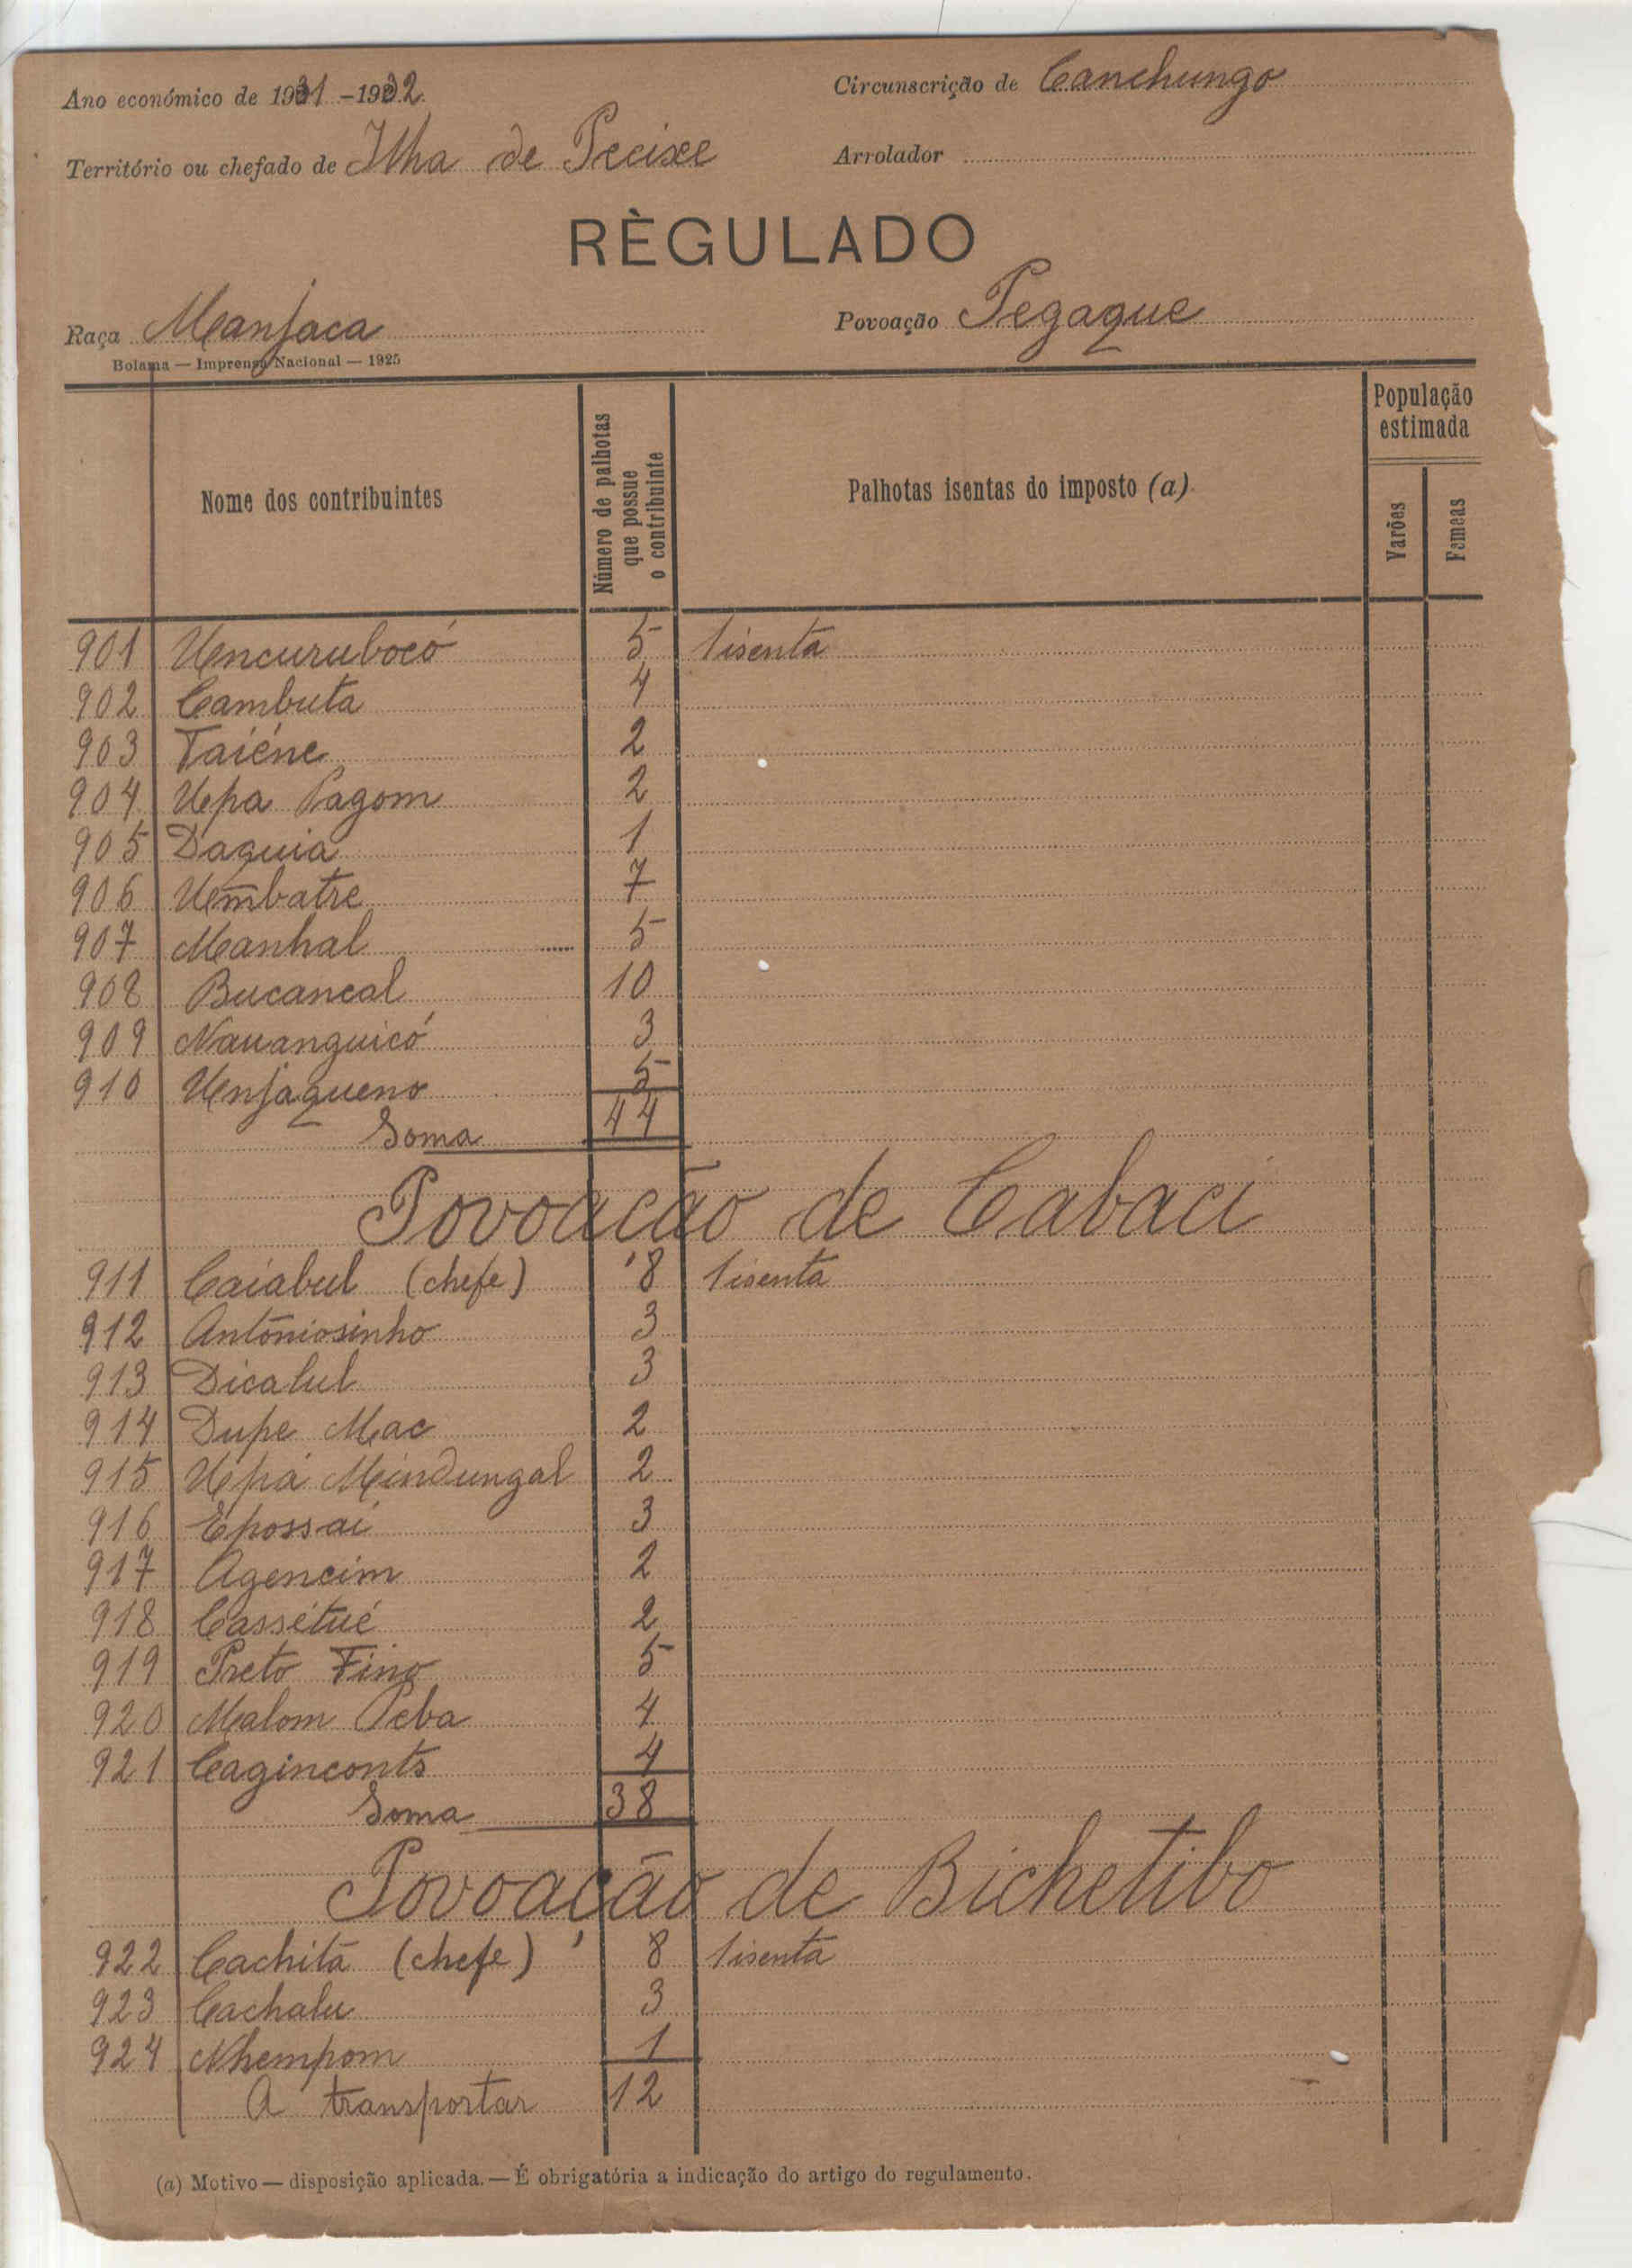 Ano económico de 1931-1932 Circunscrição de Canchungo
Território ou chefado de Ilha de Pecixe Arrolador
RÈGULADO
Raça Manjaca Povoação Pegaque
Bolama — Imprensa Nacional — 1925
Nome dos contribuintes
Número de palhotas que possue o contribuinte
Palhotas isentas do imposto (a)
População estimada
Varões
Femeas
901 Uncurubocó 5 1 isenta
902 Cambuta 4
903 Taiéne 2
904 Upa Pagom 2
905 Daquia 1
906 Umbatre 7
907 Manhal 5
908 Bucancal 10
909 Nauanguicó 3
910 Unjaqueno 5
Soma 44
Povoação de Cabaci
911 Caiabul (chefe) 8 1 isenta
912 Antóniosinho 3
913 Dicalul 3
914 Dupe Mac 2
915 Upá Mindungal 2
916 Epossai 3
917 Agencim 2
918 Cassétué 2
919 Preto Fino 5
920 Malom Peba 4
921 Caginconts 4
Soma 38
Povoação de Bichetibo
922 Cachitá (chefe) 8 1 isenta
923 Cachalu 3
924 Nhempom 1
A transportar 12
(a) Motivo — disposição aplicada. — É obrigatória a indicação do artigo do regulamento.